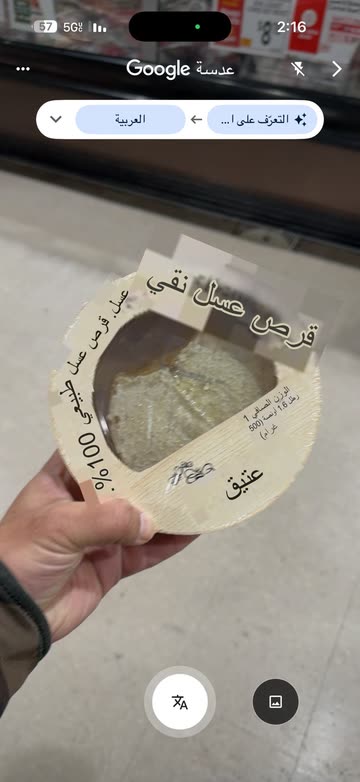 57
5G
2:16
عدسة Google
التعرّف على ا...
العربية
قرص عسل نقي
عسل. قرص عسل طبيعي 100%.
الوزن الصافي 1
رطل 1.6 اونصة (500
غرام)
عتيق